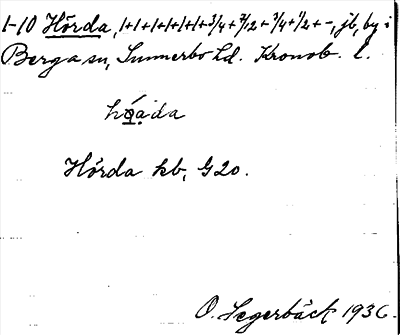 1-10 Hörda, 1+1+1+1+1+1+3/4+3/12+3/4+1/2+-, jb, by i
Berga sn, Sunnerbo hd. Kronob. l.
Hörda kb, G20.
O. Segerbäck 1936.